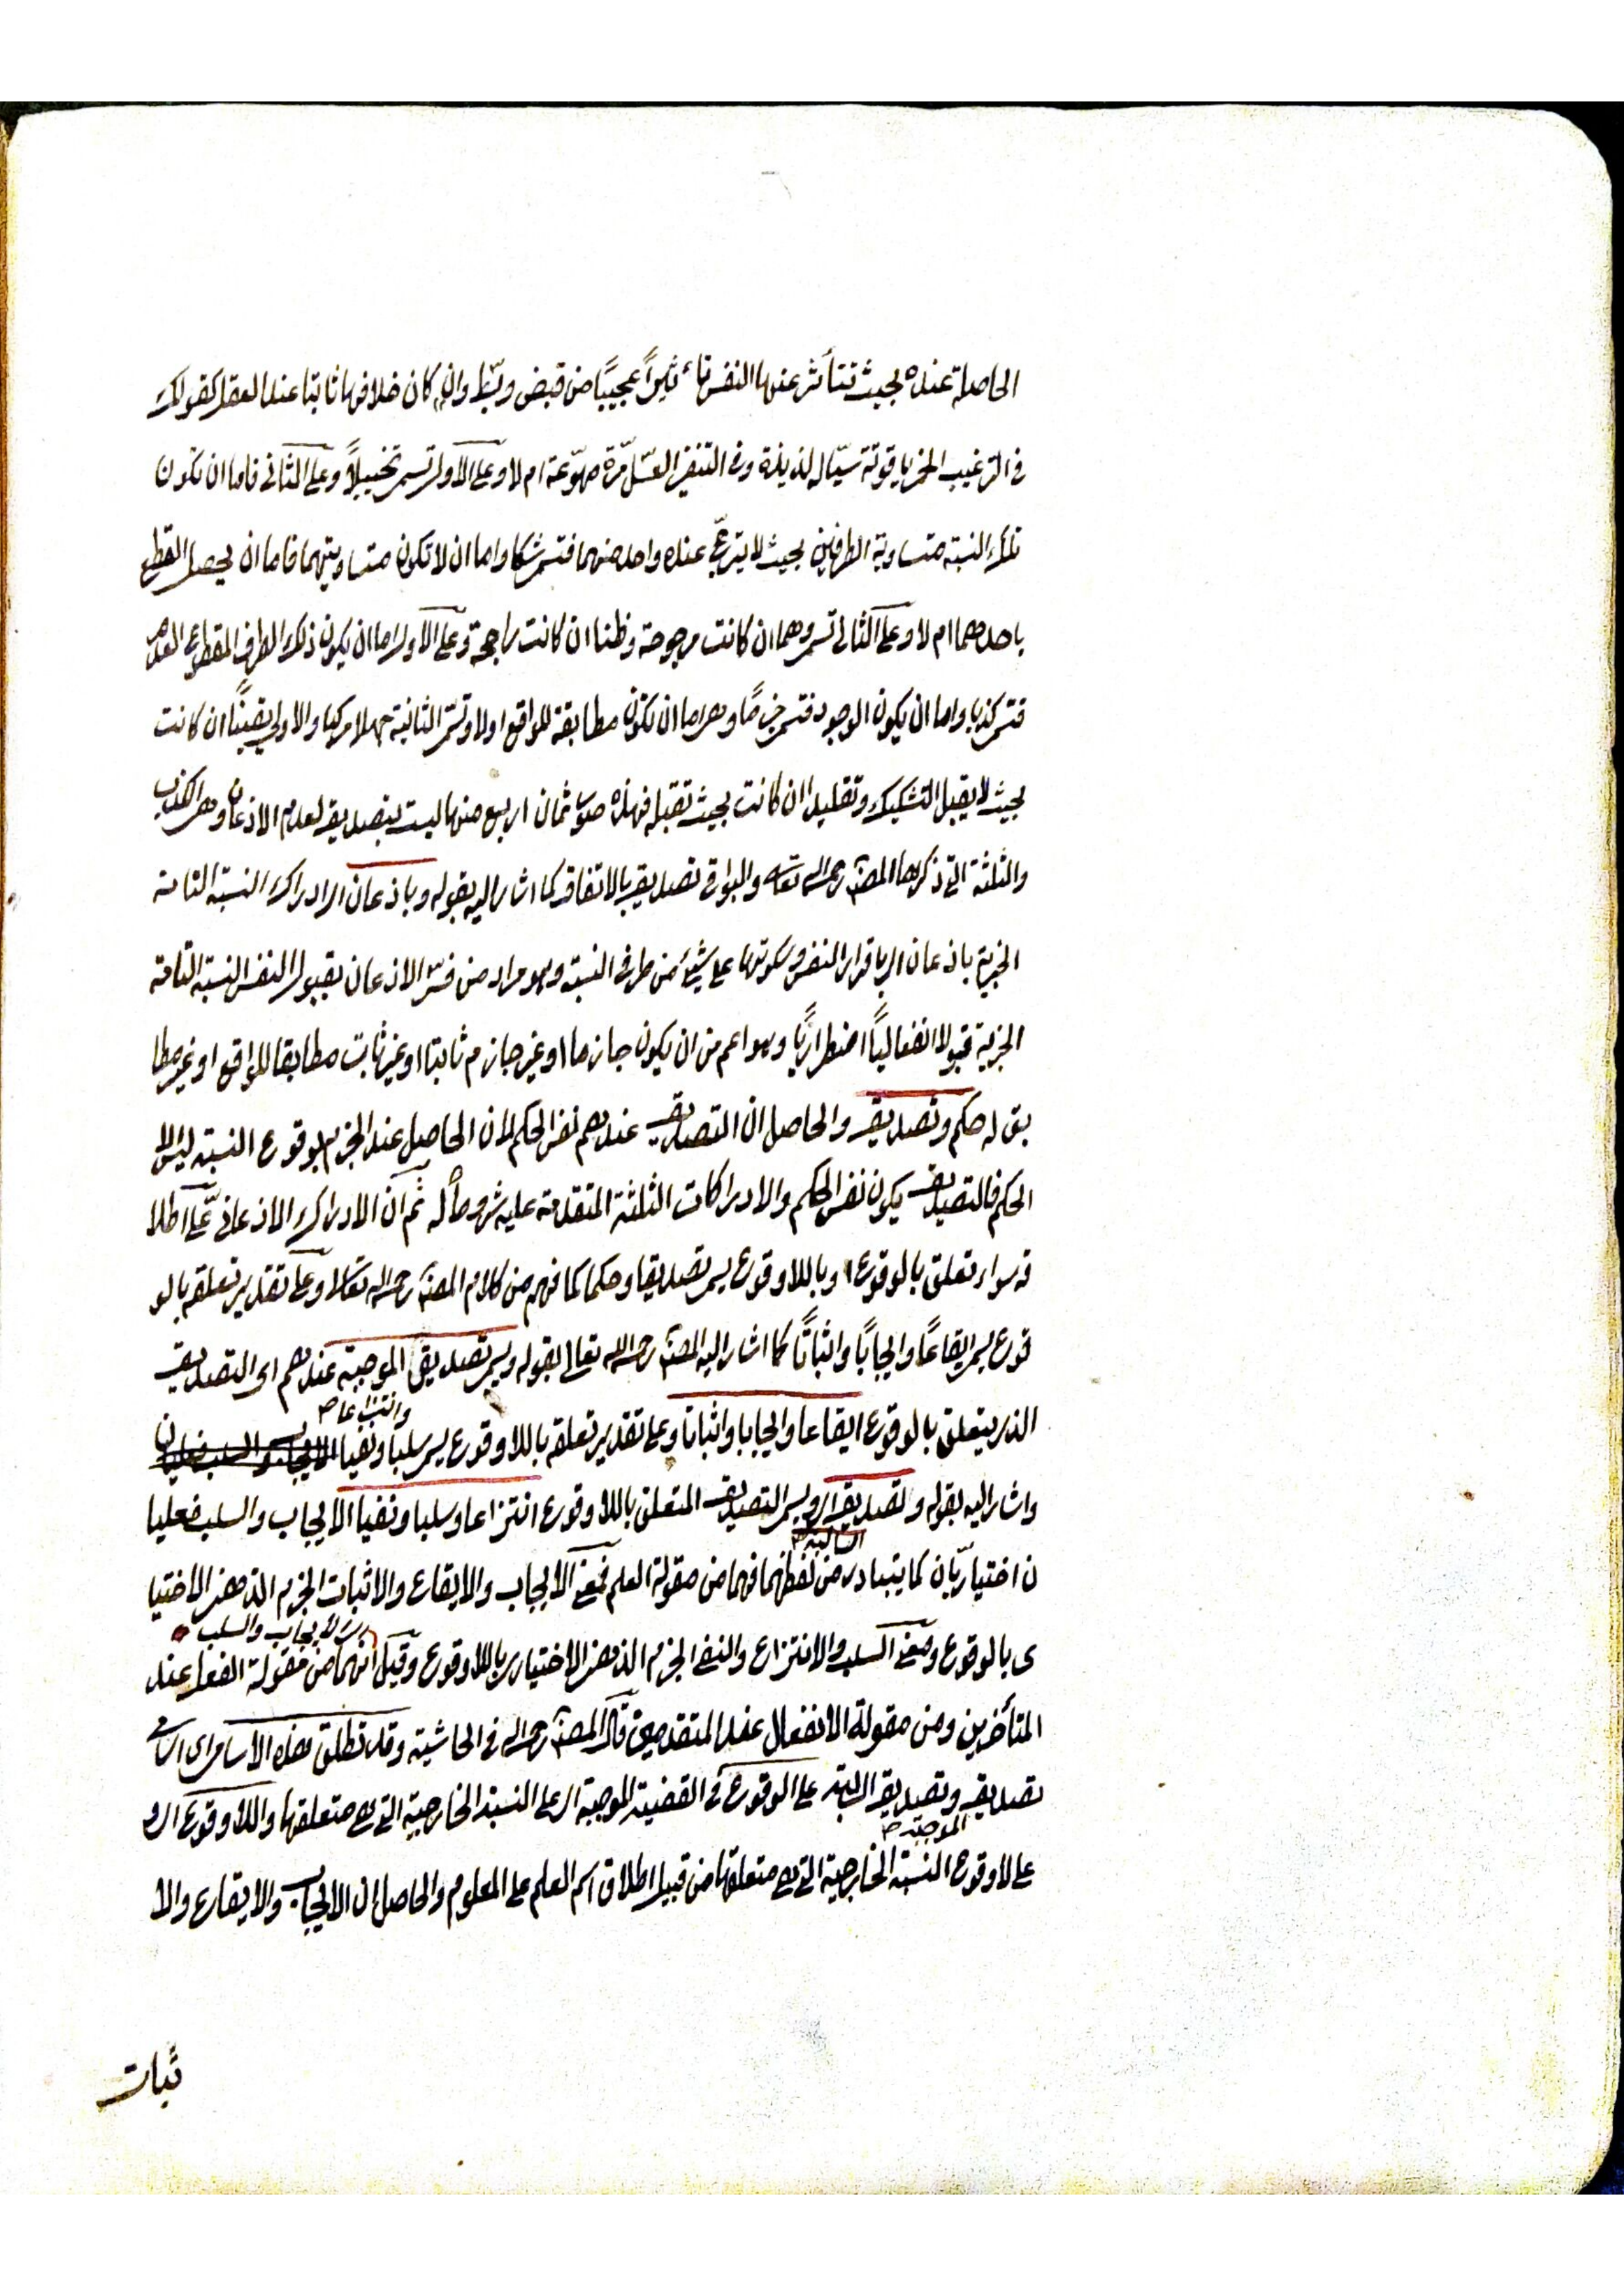 الحاصلة عنده بحيث تتأثر عنها النفس تأثيراً عجيبًا من قبض وبسط وان كان خلافها ثابتا عند العقل كقولك
فى الترغيب الخمر ياقوتة سيّاله لذيذة وفى التنفير العسل مّرة مهوّعة ام لا وعلى الاول تسمى تخييلاً وعلى الثانى فاما ان تكون
تلك النسبة متساوية الطرفين بحيث لا يترجّح عنده واحد منهما فتسمى شكا واما ان لا تكون متساويتهما فاما ان يحصل القطع
باحدهما ام لا وعلى الثانى تسمى وهما ان كانت مرجوحة وظنا ان كانت راجحة وعلى الاول اما ان يكون ذلك الطرف المقطوع العدم
فتسمى كذبا واما ان يكون الوجود فتسمى جزمًا وهى اما ان تكون مطابقة للواقع اولا وتسمى الثانية جهلا مركبا والاولى يقينًا ان كانت
بحيث لا يقبل التشكيك وتقليدا ان كانت بحيث تقبله فهذه صور ثمان اربع منها ليست بتصديق لعدم الاذعان وهى الكذب
والثلثة التى ذكرها المصنف رحمه الله تعالى والبواقى تصديق بالاتفاق كما اشار اليه بقوله وباذعان اى ادراك النسبة التامة
الخبرية باذعان اى باقرار النفس وسكونها على شيئ من طرفى النسبة وهو مراد من فسّر الاذعان بقبول النفس النسبة التامة
الخبرية قبولا انفعاليًا اضطراريًا وهو اعم من ان يكون جازما او غير جازم ثابتا او غير ثابت مطابقا للواقع او غير مطا
بق له حكم وتصديق والحاصل ان التصديق عندهم نفس الحكم لان الحاصل عند الجزم بوقوع النسبة ليس الا
الحكم فالتصديق يكون نفس الحكم والادراكات الثلثة المتقدمة عليه شروطا له ثم ان الادراك الاذعانى على اطلا
قه سواء تعلق بالوقوع او باللاوقوع يسمى تصديقا وحكما كما فهم من كلام المصنف رحمه الله تعالى وعلى تقدير تعلقه بالو
قوع يسمى ايقاعًا وايجابًا واثباتًا كما اشار اليه المصنف رحمه الله تعالى بقوله ويسمى تصديق الموجبة عندهم اى التصديق
وانتزاعا صح
الذى يتعلق بالوقوع ايقاعا وايجابا واثباتا وعلى تقدير تعلقه باللاوقوع يسمى سلبا ونفيا الايجاب والسلب فعليان
واشار اليه بقوله وتصديق اى ويسمى التصديق المتعلق باللاوقوع انتزاعا وسلبا ونفيا الايجاب والسلب فعليا
السالبة صح
ن اختياريّان كما يتبادر من لفظهما فهما من مقولة العلم فمعنى الايجاب والايقاع والاثبات الجزم الذهنى الاختيا
اى الايجاب والسلب
رى بالوقوع ومعنى السلب والانتزاع والنفى الجزم الذهنى الاختيارى باللاوقوع وقيل انهما من مقولة الفعل عند
المتأخرين ومن مقولة الانفعال عند المتقدمين قال المصنف رحمه الله فى الحاشية وقد تطلق هذه الاسامى اى اسامى
تصديق وتصديق السالبة على الوقوع فى القضية الموجبة اى على النسبة الخارجية التى هى متعلقها واللاوقوع اى و
الموجبة صح
على لاوقوع النسبة الخارجية التى هى متعلقها من قبيل اطلاق اسم العلم على المعلوم والحاصل ان الايجاب والايقاع والا
ثبات